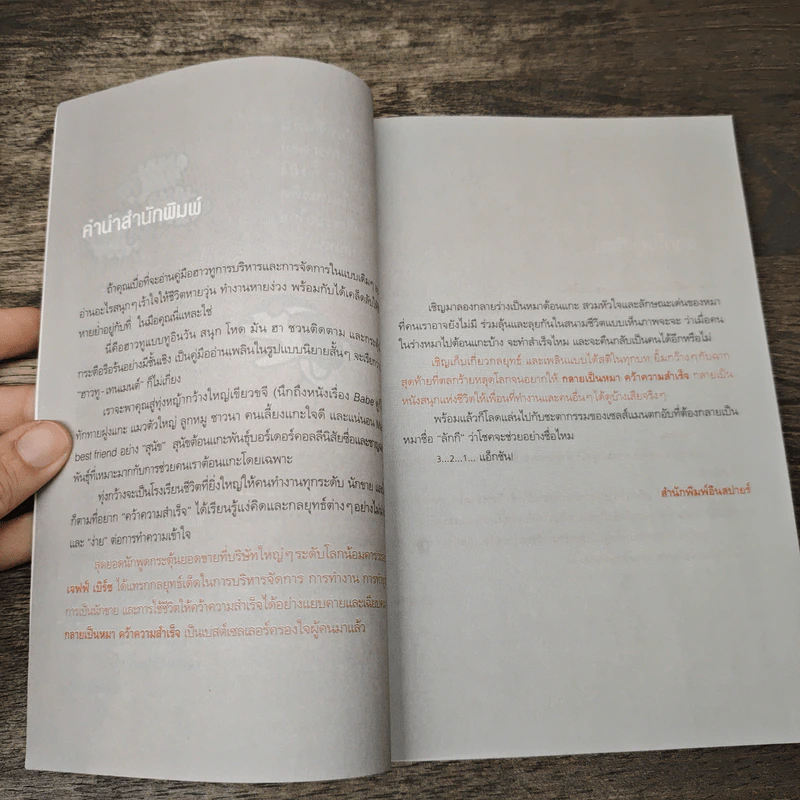 คำนำสำนักพิมพ์
ถ้าคุณเบื่อที่จะอ่านคู่มือฮาวทูการบริหารและการจัดการในแบบเดิมๆ
อ่านอะไรสนุกๆ เร้าใจให้ชีวิตหายวุ่น ทำงานหายง่วง พร้อมกับได้เคล็ดลับ
หายย่ำอยู่กับที่ ในมือคุณนี่แหละใช่
นี่คือฮาวทูแบบทูอินวัน สนุก โหด มัน ฮา ชวนติดตาม และกระตุ้น
กระตือรือร้นอย่างมีชั้นเชิง เป็นคู่มืออ่านเพลินในรูปแบบนิยายสั้นๆ จะเรียก
"ฮาวทู-เทนเมนต์" ก็ไม่เกี่ยง
เราจะพาคุณสู่ทุ่งหญ้ากว้างใหญ่เขียวขจี (นึกถึงหนังเรื่อง Babe
ทักทายฝูงแกะ แมวตัวใหญ่ ลูกหมู ชาวนา คนเลี้ยงแกะใจดี และแน่นอน
best friend อย่าง "สุนัข" สุนัขต้อนแกะพันธุ์บอร์เดอร์คอลลีนิสัยซื่อและ
พันธุ์ที่เหมาะมากกับการช่วยคนเราต้อนแกะโดยเฉพาะ
ทุ่งกว้างจะเป็นโรงเรียนชีวิตที่ยิ่งใหญ่ให้คนทำงานทุกระดับ นักขาย
ก็ตามที่อยาก "คว้าความสำเร็จ" ได้เรียนรู้แง่คิดและกลยุทธ์ต่างๆ อย่าง
และ "ง่าย" ต่อการทำความเข้าใจ
สุดยอดนักพูดกระตุ้นยอดขายที่บริษัทใหญ่ๆ ระดับโลกน้อมคารวะ
เจฟฟ์ เบิร์ช ได้แทรกกลยุทธ์เด็ดในการบริหารจัดการ การทำงาน
การเป็นนักขาย และการใช้ชีวิตให้คว้าความสำเร็จได้อย่างแยบคายและ
กลายเป็นหมา คว้าความสำเร็จ เป็นเบสต์เซลเลอร์ครองใจผู้คนมาแล้ว
เชิญมาลองกลายร่างเป็นหมาต้อนแกะ สวมหัวใจและลักษณะเด่นของหมา
ที่คนเราอาจยังไม่มี ร่วมลุ้นและลุยกันในสนามชีวิตแบบเห็นภาพจะจะ ว่าเมื่อคน
ในร่างหมาไปต้อนแกะบ้าง จะทำสำเร็จไหม และจะคืนกลับเป็นคนได้อีกหรือไม่
เชิญเก็บเกี่ยวกลยุทธ์ และเพลินแบบได้สติในทุกบท ยิ้มกว้างๆ กับฉาก
สุดท้ายที่ตลกร้ายหลุดโลกจนอยากให้ กลายเป็นหมา คว้าความสำเร็จ กลายเป็น
หนังสนุกแห่งชีวิตให้เพื่อนที่ทำงานและคนอื่นๆ ได้ดูบ้างเสียจริงๆ
พร้อมแล้วก็โลดแล่นไปกับชะตากรรมของเซลส์แมนตกอับที่ต้องกลายเป็น
หมาชื่อ "ลักกี" ว่าโชคจะช่วยอย่างชื่อไหม
3...2...1... แอ็กชัน!
สำนักพิมพ์อินสปายร์